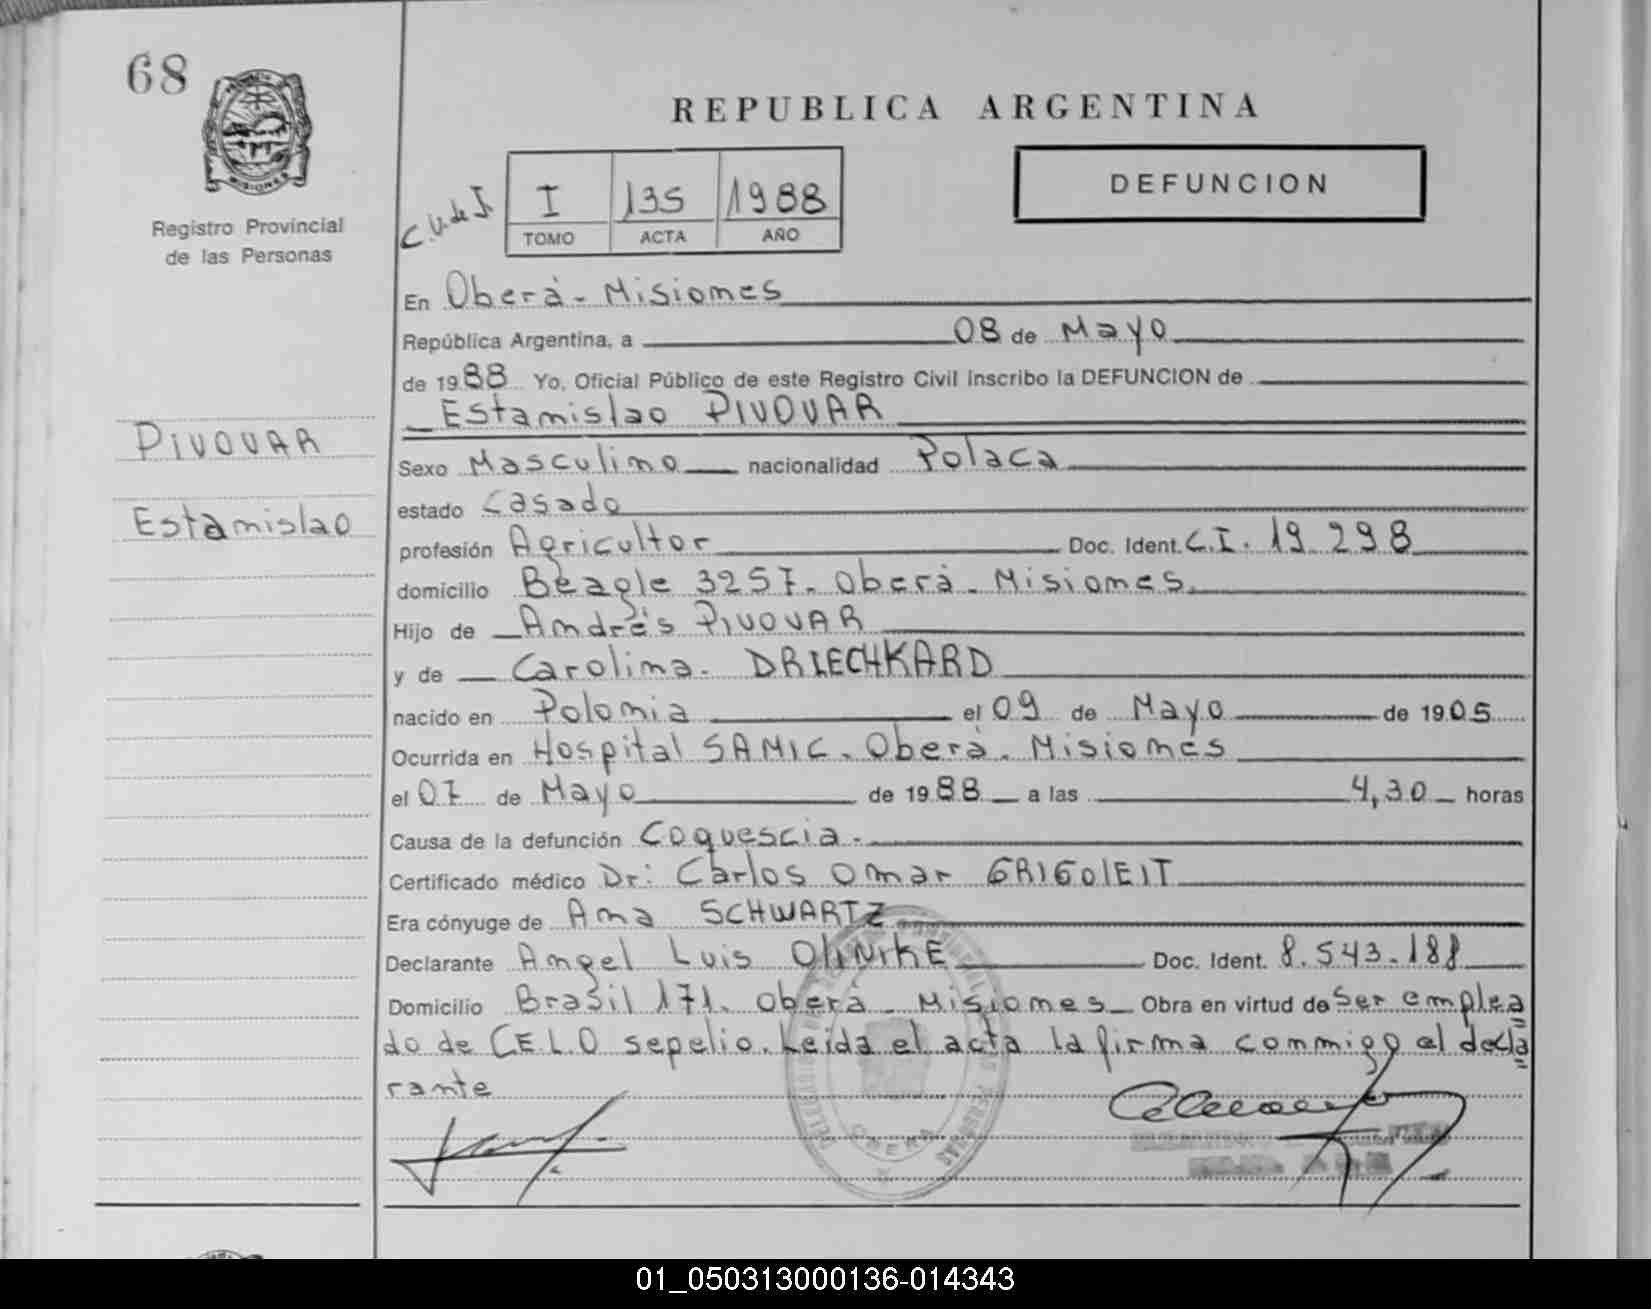 68
MISIONES
Registro Provincial
de las Personas
REPUBLICA ARGENTINA
C.V. de I
I 135 1988
TOMO ACTA AÑO
DEFUNCION
En Oberà - Misiones
República Argentina, a 08 de Mayo
de 1988 Yo, Oficial Público de este Registro Civil inscribo la DEFUNCION de
Estanislao PIVOVAR
PIVOVAR
Estanislao
Sexo Masculino nacionalidad Polaca
estado Casado
profesión Agricultor Doc. Ident. C.I. 19.298
domicilio Beagle 3257. Oberà - Misiones.
Hijo de Andrés PIVOVAR
y de Carolina. DRIECHKARD
nacido en Polonia el 09 de Mayo de 1905
Ocurrida en Hospital SAMIC. Oberà. Misiones
el 07 de Mayo de 1988 a las 4,30 horas
Causa de la defunción Coquescia.
Certificado médico Dr: Carlos Omar GRIGOLEIT
Era cónyuge de Ana SCHWARTZ
Declarante Angel Luis OLINIKE Doc. Ident. 8.543.188
Domicilio Brasil 171. Oberà - Misiones Obra en virtud de ser emplea
do de C.E.L.O sepelio. Leida el acta la firma conmigo el decla
rante
OBERA
01_050313000136-014343